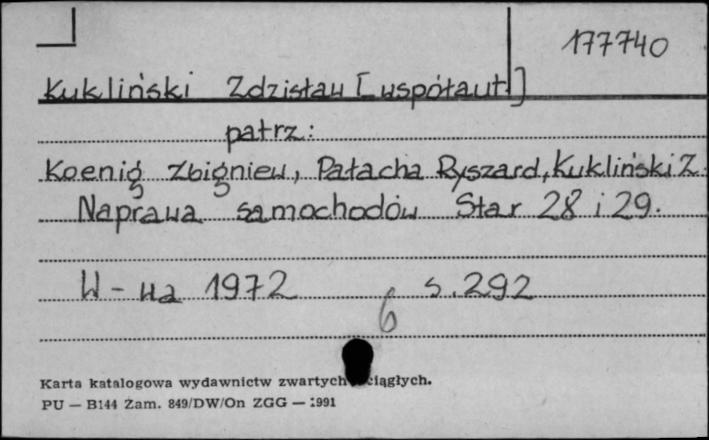 177740
Kukliński Zdzisław [współaut.]
patrz:
Koenig Zbigniew, Pałacha Ryszard, Kukliński Z.
Naprawa samochodów Star 28 i 29.
W-wa 1972 s. 292
6
Karta katalogowa wydawnictw zwartych ciągłych.
PU — B144 Zam. 849/DW/On ZGG — 1991